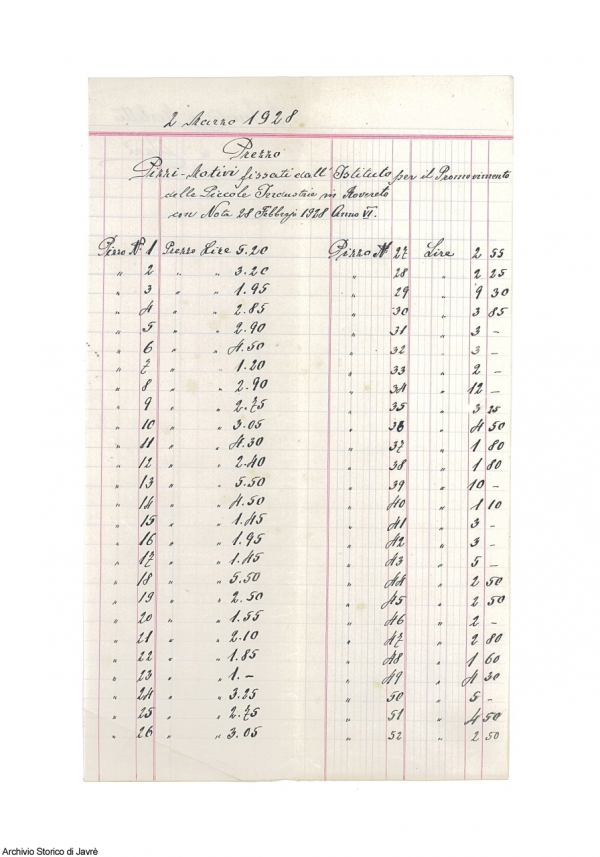 2 Marzo 1928
Prezzo
Pizzi-Motivi fissati dall'Istituto per il Promovimento
delle Piccole Industrie in Rovereto
con Nota 28 Febbrajo 1928 Anno VI.
Pizzo No 1 Prezzo Lire 5.20
" 2 " " 3.20
" 3 " " 1.95
" 4 " " 2.85
" 5 " " 2.90
" 6 " " 4.50
" 7 " " 1.20
" 8 " " 2.90
" 9 " " 2.75
" 10 " " 3.05
" 11 " " 4.30
" 12 " " 2.40
" 13 " " 5.50
" 14 " " 4.50
" 15 " " 1.45
" 16 " " 1.95
" 17 " " 1.45
" 18 " " 5.50
" 19 " " 2.50
" 20 " " 1.55
" 21 " " 2.10
" 22 " " 1.85
" 23 " " 1.-
" 24 " " 3.25
" 25 " " 2.75
" 26 " " 3.05
Pizzo No 27 Lire 2 55
" 28 " 2 25
" 29 " 9 30
" 30 " 3 85
" 31 " 3 -
" 32 " 3 -
" 33 " 2 -
" 34 " 12 -
" 35 " 3 25
" 36 " 4 50
" 37 " 1 80
" 38 " 1 80
" 39 " 10 -
" 40 " 1 10
" 41 " 3 -
" 42 " 3 -
" 43 " 5 -
" 44 " 2 50
" 45 " 2 50
" 46 " 2 -
" 47 " 2 80
" 48 " 1 60
" 49 " 4 30
" 50 " 5 -
" 51 " 4 50
" 52 " 2 50
Archivio Storico di Javrè